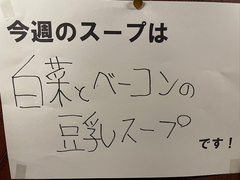 今週のスープは
白菜とベーコンの
豆乳スープ
です！